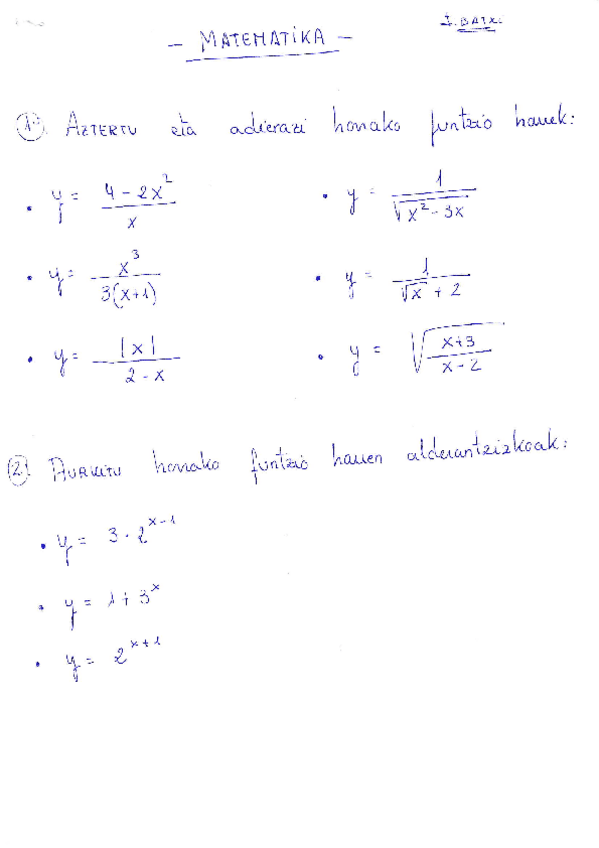 1. BATX.
- MATEMATIKA -
1. AZTERTU eta adierazi honako funtzio hauek:
• y = (4 - 2x²)/x • y = 1/√(x² - 3x)
• y = x³/(3(x+1)) • y = 1/(√x + 2)
• y = |x|/(2 - x) • y = √((x+3)/(x-2))
2. AURKITU honako funtzio hauen alderantzizkoak:
• y = 3 · 2^(x-1)
• y = 1 + 3^x
• y = 2^(x+1)